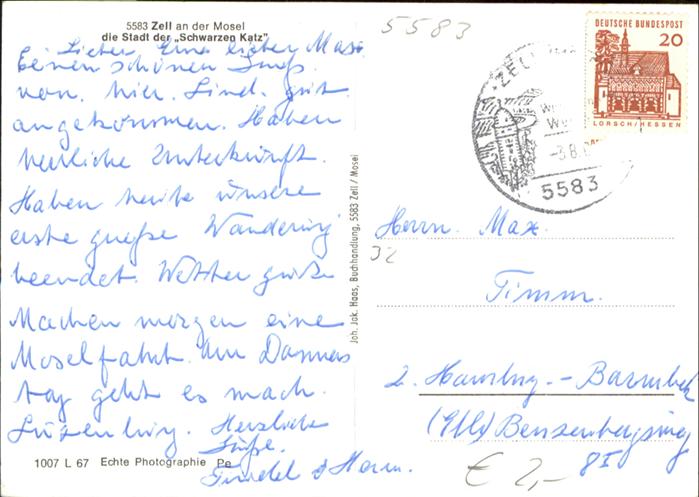 5583 Zell an der Mosel
die Stadt der „Schwarzen Katz"
Lieber Erna lieber Max
Einen schönen Gruß
von hier. Sind gut
angekommen. Haben
herrliche Unterkunft.
Haben heute unsere
erste große Wanderung
beendet. Wetter gut
Machen morgen eine
Moselfahrt. Am Donners
tag geht es nach
Luxenburg. Herzliche
Grüße.
Trudel & Herm.
1007 L 67 Echte Photographie Pe
Joh. Jak. Haas, Buchhandlung, 5583 Zell / Mosel
5583
ZELL
-3.8.
5583
DEUTSCHE BUNDESPOST
20
LORSCH/HESSEN
Herrn. Max.
32
Timm.
2. Hamburg.-Barmbek
Benzenbergweg
€ 2,- 8I